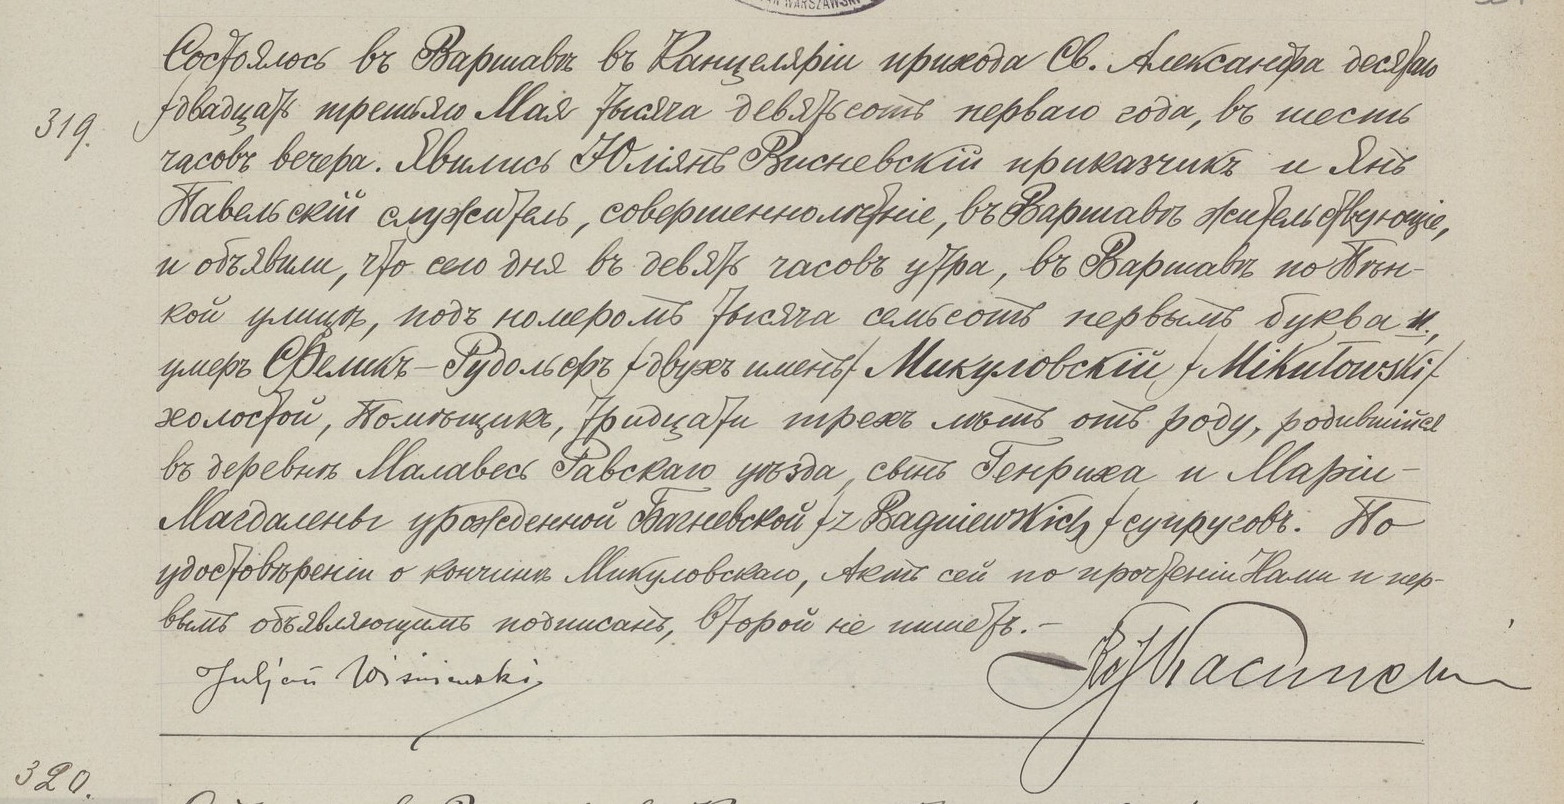 WARSZAWSKI
Состоялось въ Варшавѣ въ Канцеляріи прихода Св. Александра десятаго
319. /двадцать третьяго Мая тысяча девятьсотъ перваго года, въ шесть
часовъ вечера. Явились Юліянъ Висневскій приказчикъ и Янъ
Павельскій служитель, совершеннолѣтніе, въ Варшавѣ жительствующіе,
и объявили, что сего дня въ девять часовъ утра, въ Варшавѣ по Пѣн-
кой улицѣ, подъ номеромъ тысяча семьсотъ первымъ буква н.,
умеръ Феликъ-Рудольфъ /двухъ именъ/ Микуловскій /Mikułowski/
холостой, Помѣщикъ, тридцати трехъ лѣтъ отъ роду, родившійся
въ деревнѣ Малавесь Равскаго уѣзда, сынъ Генриха и Маріи-
Магдалены урожденной Багневской /z Bagniewskich/ супруговъ. По
удостовѣреніи о кончинѣ Микуловскаго, Актъ сей по прочтеніи Нами и пер-
вымъ объявляющимъ подписанъ, второй не пишетъ.-
Juljan Wiśniewski
320.